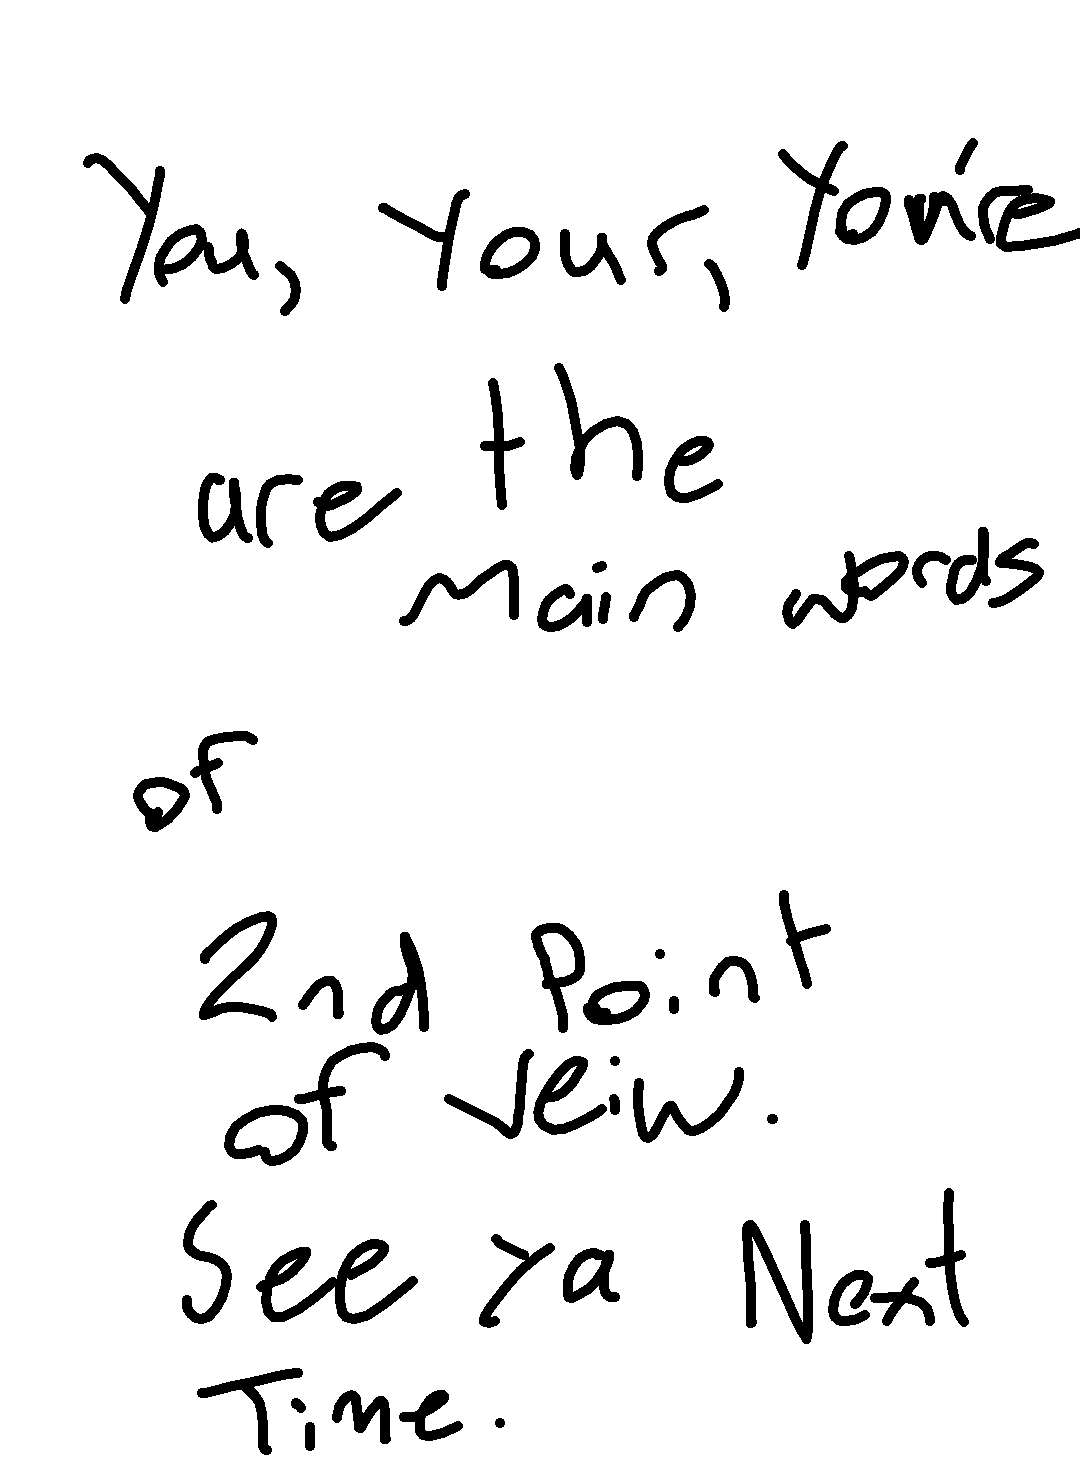 You, Your, You're
are the
main words
of
2nd Point
of veiw.
See ya Next
Time.